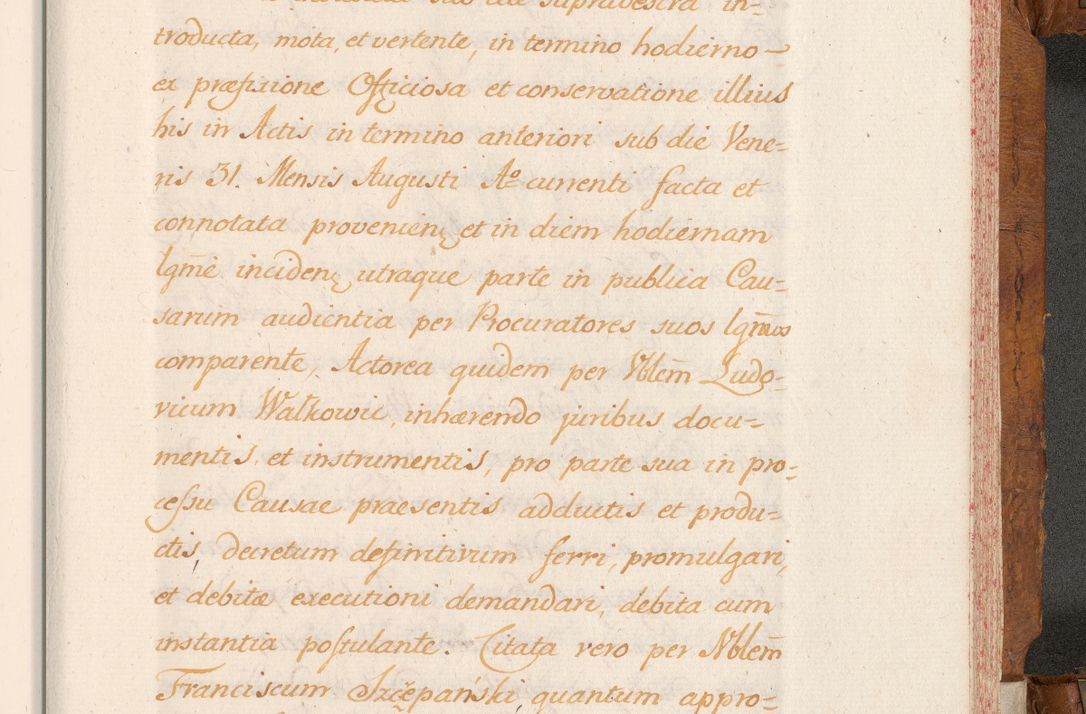 sub die supravestra in-
troducta, mota, et vertente, in termino hodierno —
ex præfixione Officiosa et conservatione illius
his in Actis in termino anteriori sub die Vene-
ris 31. Mensis Augusti Aº currenti facta et
connotata provenien, et in diem hodiernam
lgm̃e inciden, utraque parte in publica Cau-
sarum audientia per Procuratores suos lgm̃os
comparente, Actorea quidem per Nblem̃ Ludo-
vicum Wałkowic, inhærendo juribus docu-
mentis, et instrumentis, pro parte sua in pro-
cessu Causae praesentis adductis et produ-
ctis, decretum definitivum ferri, promulgari,
et debitæ executioni demandari, debita cum
instantia postulante. Citata vero per Nblem̃
Franciscum Szczepański, quantum appro-